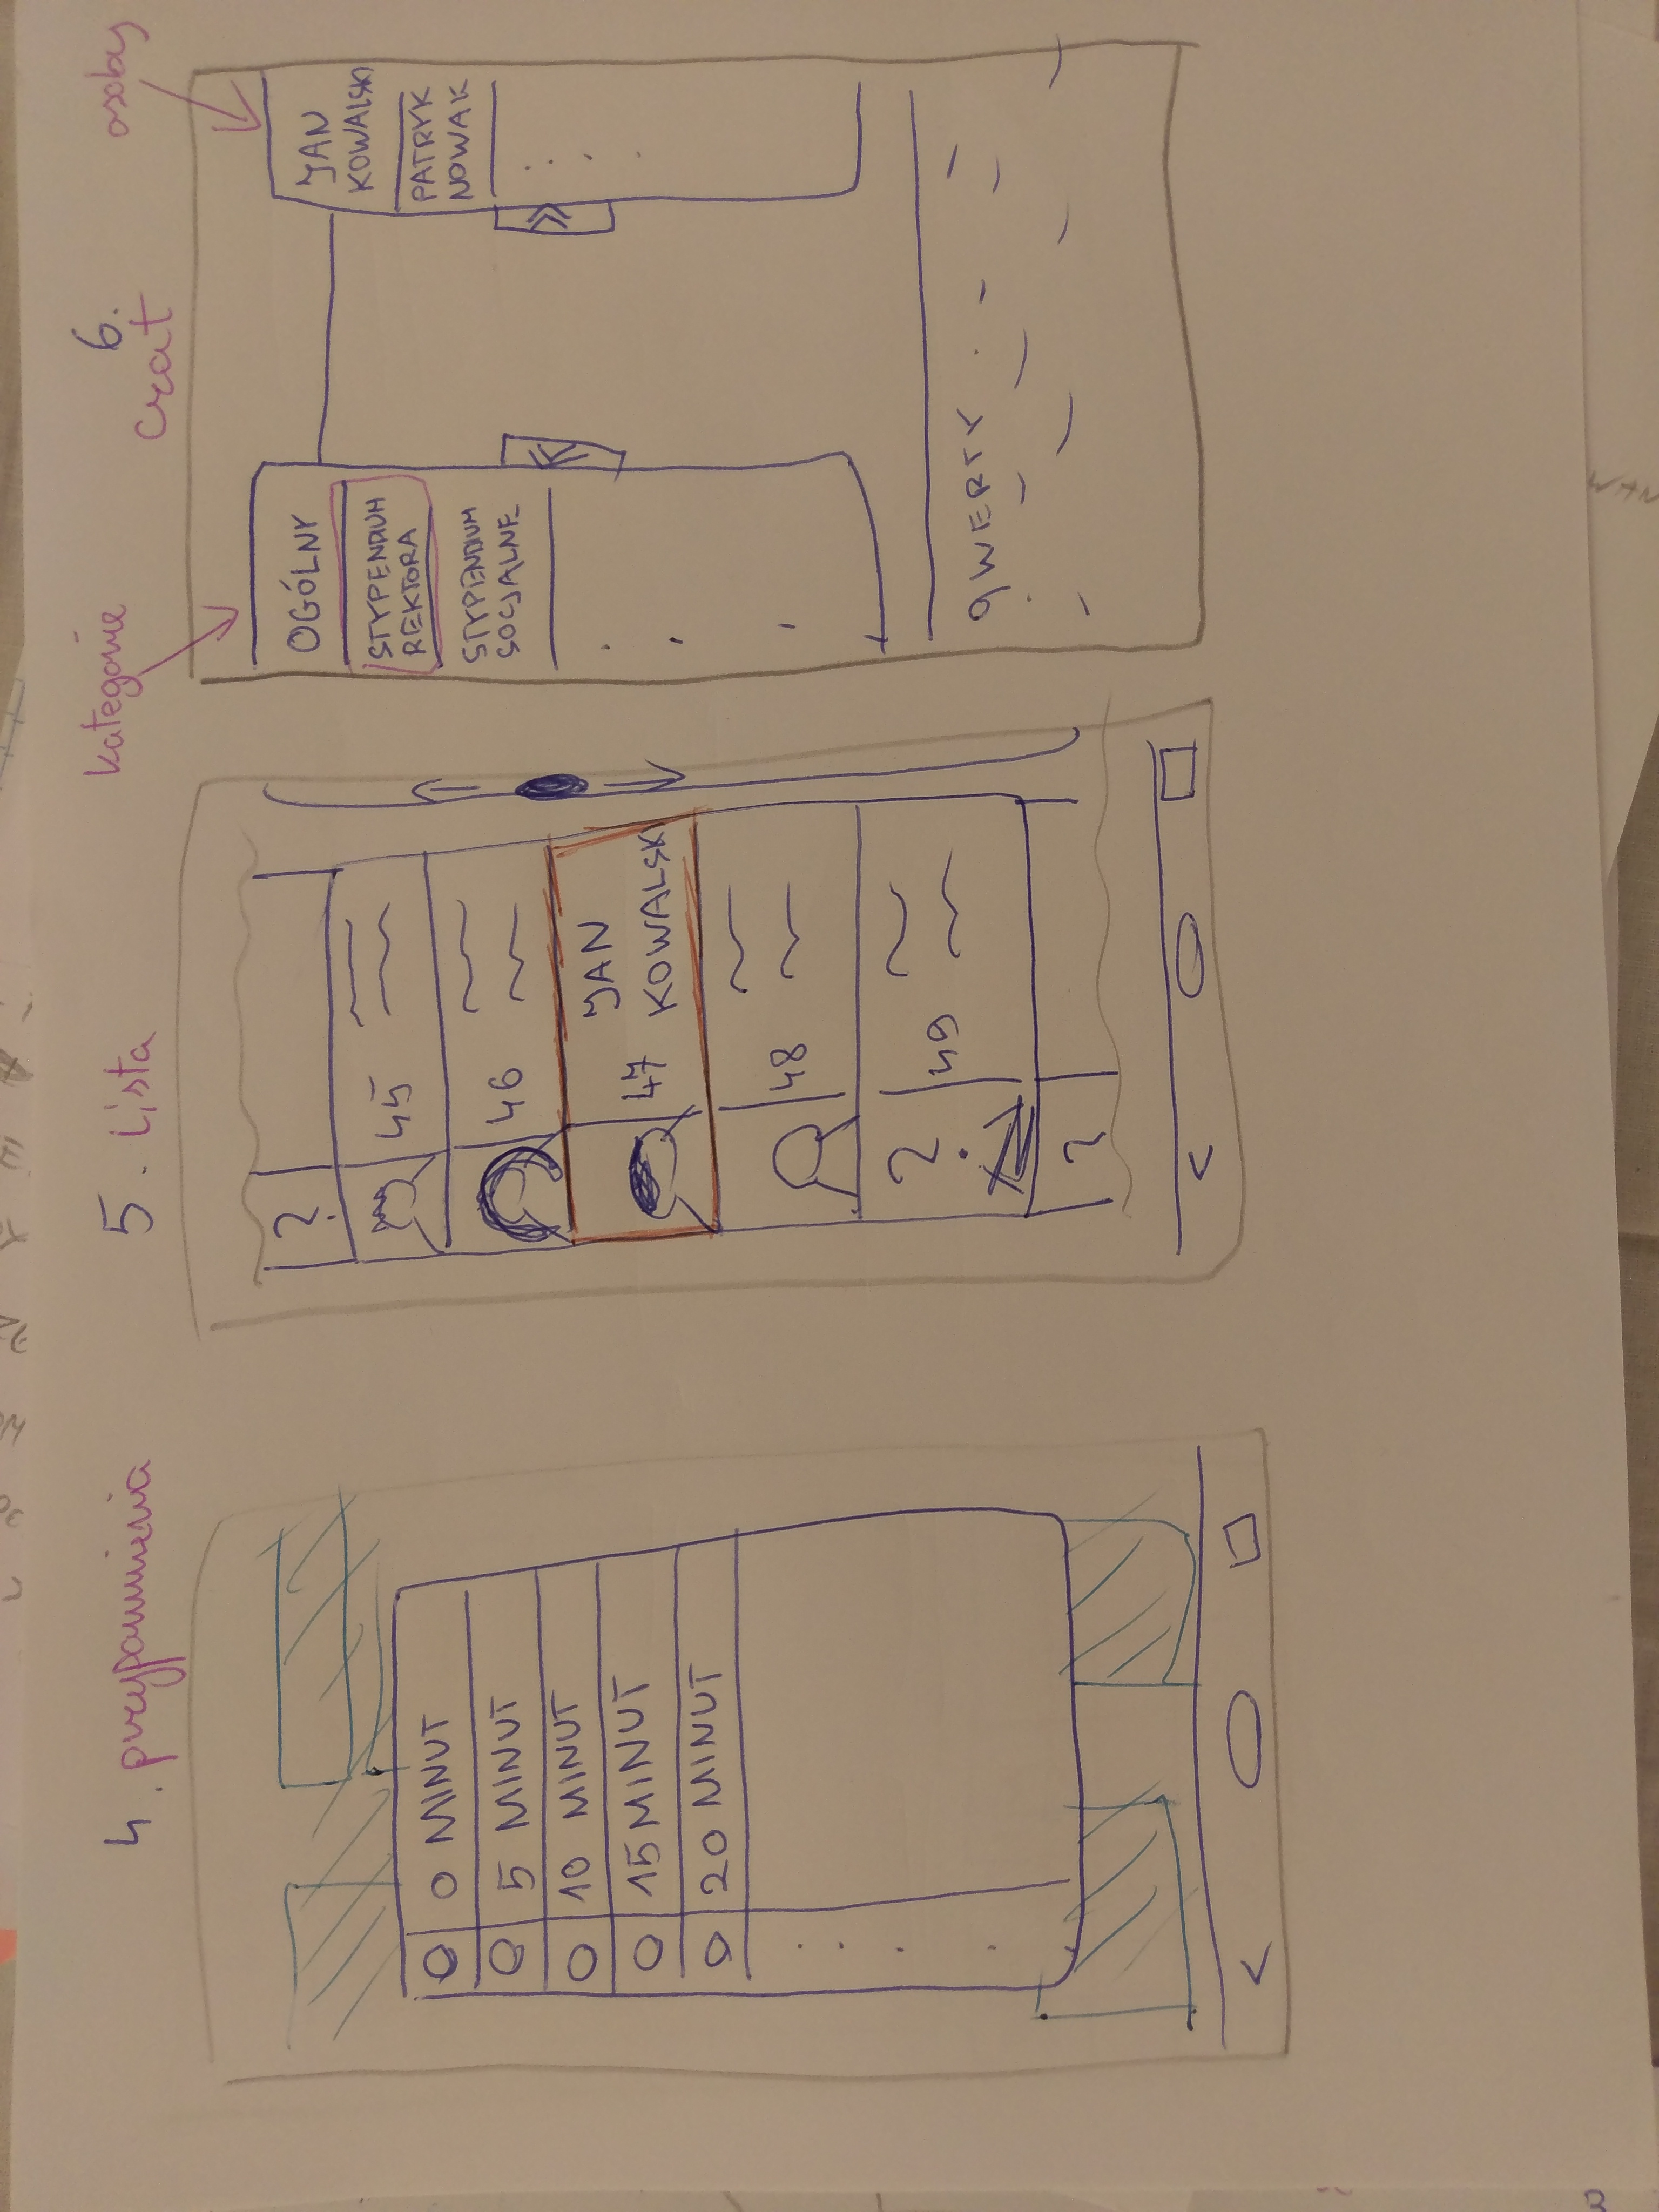 4. przypomnienia
0 MINUT
5 MINUT
10 MINUT
15 MINUT
20 MINUT
5. Lista
?
45
46
47 JAN
KOWALSKI
48
? 49
?
6.
Czat
kategorie
osoby
OGÓLNY
STYPENDIUM
REKTORA
STYPENDIUM
SOCJALNE
JAN
KOWALSKI
PATRYK
NOWAK
QWERTY